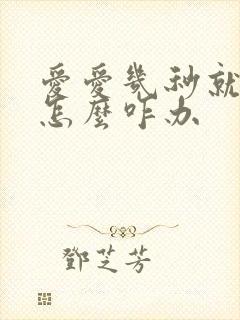 愛愛幾秒就
怎麼咋办
鄧芝芳